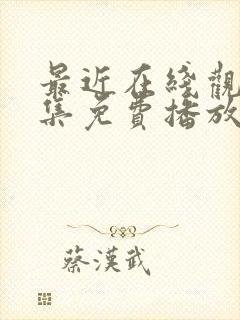 最近在綫觀
集免費播放
蔡漢武